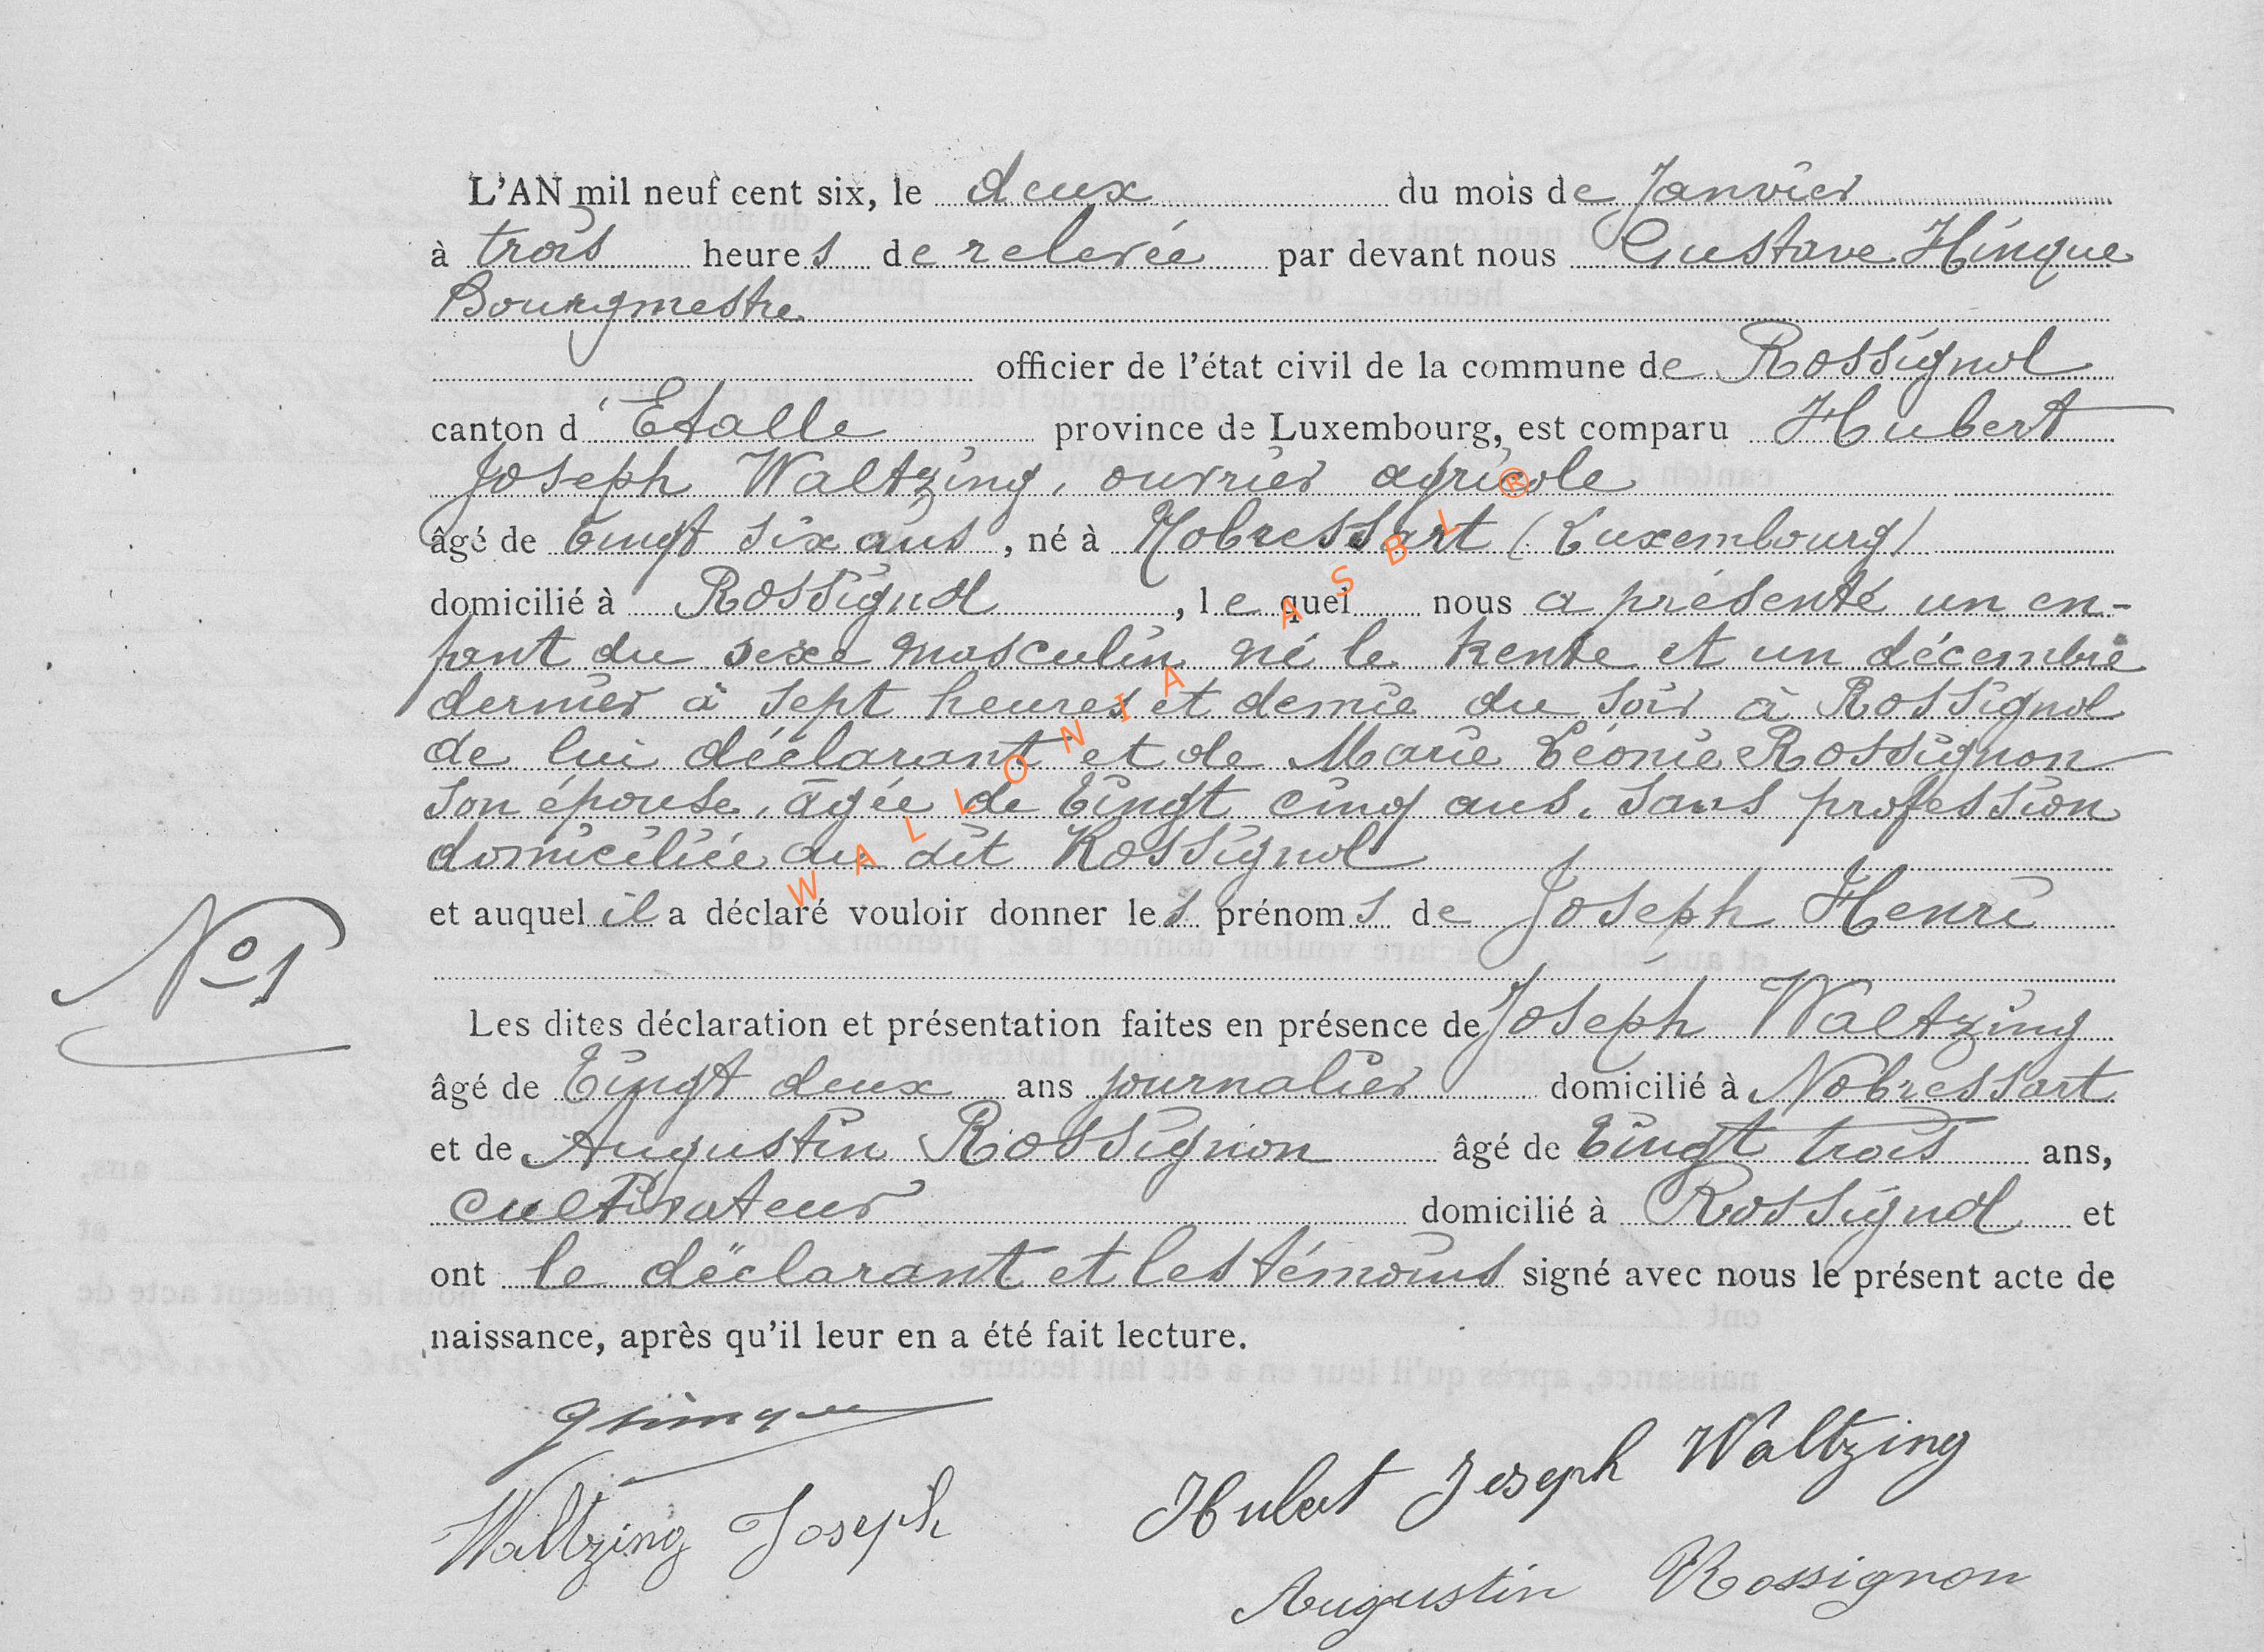 L'AN mil neuf cent six, le deux du mois de Janvier
à trois heures de relevée par devant nous Gustave Hinque
Bourgmestre
officier de l'état civil de la commune de Rossignol
canton d' Etalle province de Luxembourg, est comparu Hubert
Joseph Waltzing, ouvrier agricole
âgé de Vingt six ans, né à Nobressart (Luxembourg)
domicilié à Rossignol, lequel nous a présenté un en-
fant du sexe masculin né le trente et un décembre
dernier à sept heures et demie du soir à Rossignol
de lui déclarant et de Marie Léonie Rossignon
son épouse, âgée de Vingt cinq ans, sans profession
domiciliée au dit Rossignol
et auquel il a déclaré vouloir donner les prénoms de Joseph Henri
No 1
Les dites déclaration et présentation faites en présence de Joseph Waltzing
âgé de Vingt deux ans journalier domicilié à Nobressart
et de Augustin Rossignon âgé de Vingt trois ans,
cultivateur domicilié à Rossignol et
ont le déclarant et les témoins signé avec nous le présent acte de
naissance, après qu'il leur en a été fait lecture.
GHinque
Hubert Joseph Waltzing
Waltzing Joseph
Augustin Rossignon
WALLONIA ASBL ®